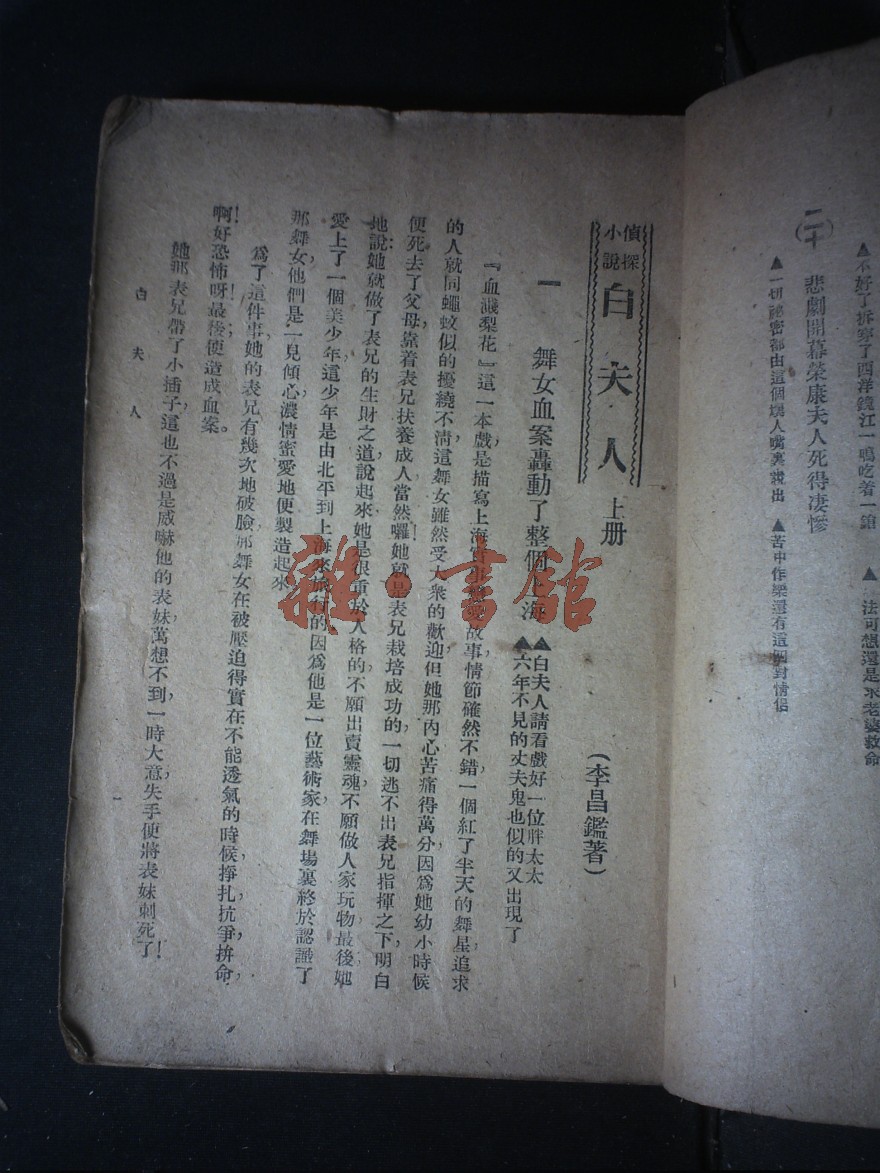 ▲不好了拆穿了西洋鏡江一鳴吃着一鎗　▲　法可想還是求老婆救命
(二十)　悲劇開幕榮康夫人死得凄慘
▲一切祕密都由這個壞人嘴裏說出　▲苦中作樂還有這　對情侶
偵探小說　白夫人　上册
(李昌鑑著)
一　舞女血案轟動了整個上海
▲白夫人請看戲好一位胖太太
▲六年不見的丈夫鬼也似的又出現了
『血濺梨花』這一本戲，是描寫上海實事　故事情節確然不錯，一個紅了半天的舞星，追求
的人就同蠅蚊似的擾繞不淸，這舞女雖然受大衆的歡迎，但她那內心苦痛得萬分，因爲她幼小時候
便死去了父母，靠着表兄扶養成人，當然囉！她就是表兄栽培成功的，一切逃不出表兄指揮之下，明白
地說：她就做了表兄的生財之道，說起來她是很重於人格的，不願出賣靈魂，不願做人家玩物，最後她
愛上了一個美少年，這少年是由北平到上海來旅行的，因爲他是一位藝術家，在舞場裏終於認識了
那舞女，他們是一見傾心，濃情蜜愛地便製造起來。
爲了這件事，她的表兄有幾次地破臉，那舞女在被壓迫得實在不能透氣的時候，掙扎，抗爭，拚命，
！啊！好恐怖呀！最後便造成血案。
她那表兄帶了小插子，這也不過是威嚇他的表妹，萬想不到一時大意，失手便將表妹刺死了！
白夫人
一
雜·書館